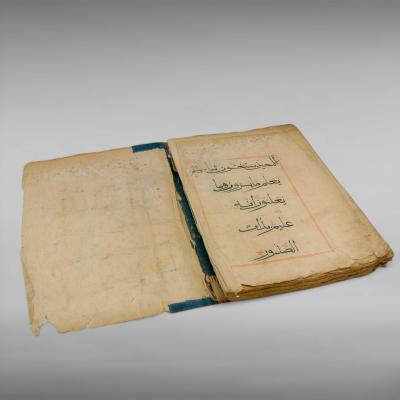 ألا حين يستغشون ثيابهم
يعلم ما يسرون وما
يعلنون إنه
عليم بذات
الصدور